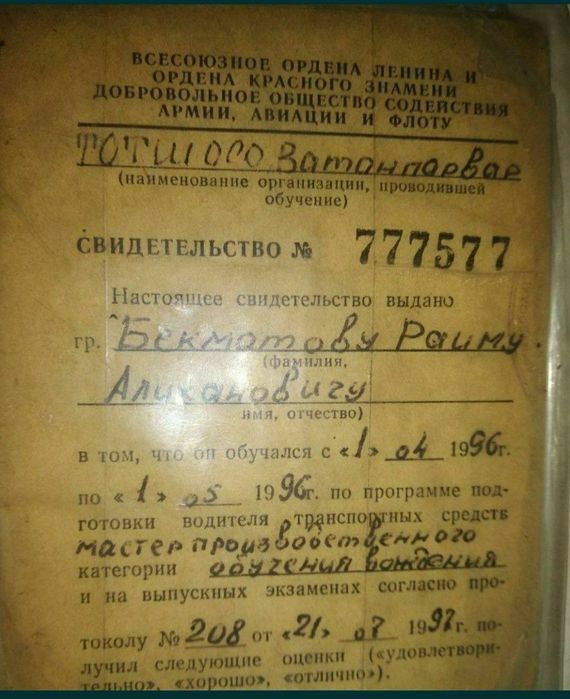 ВСЕСОЮЗНОЕ ОРДЕНА ЛЕНИНА И
ОРДЕНА КРАСНОГО ЗНАМЕНИ
ДОБРОВОЛЬНОЕ ОБЩЕСТВО СОДЕЙСТВИЯ
АРМИИ, АВИАЦИИ И ФЛОТУ
ТОТШ ОСО
(наименование организации, проводившей
обучение)
СВИДЕТЕЛЬСТВО № 777577
Настоящее свидетельство выдано
гр. Бекматову Раиму
(фамилия,
Алихановичу
имя, отчество)
в том, что он обучался с «1» 04 1996г.
по «1» 05 1996г. по программе под-
готовки водителя транспортных средств
мастер производственного
категории обучения вождения
и на выпускных экзаменах согласно про-
токолу № 208 от «21» 07 1997г. по-
лучил следующие оценки («удовлетвори-
тельно», «хорошо», «отлично»).